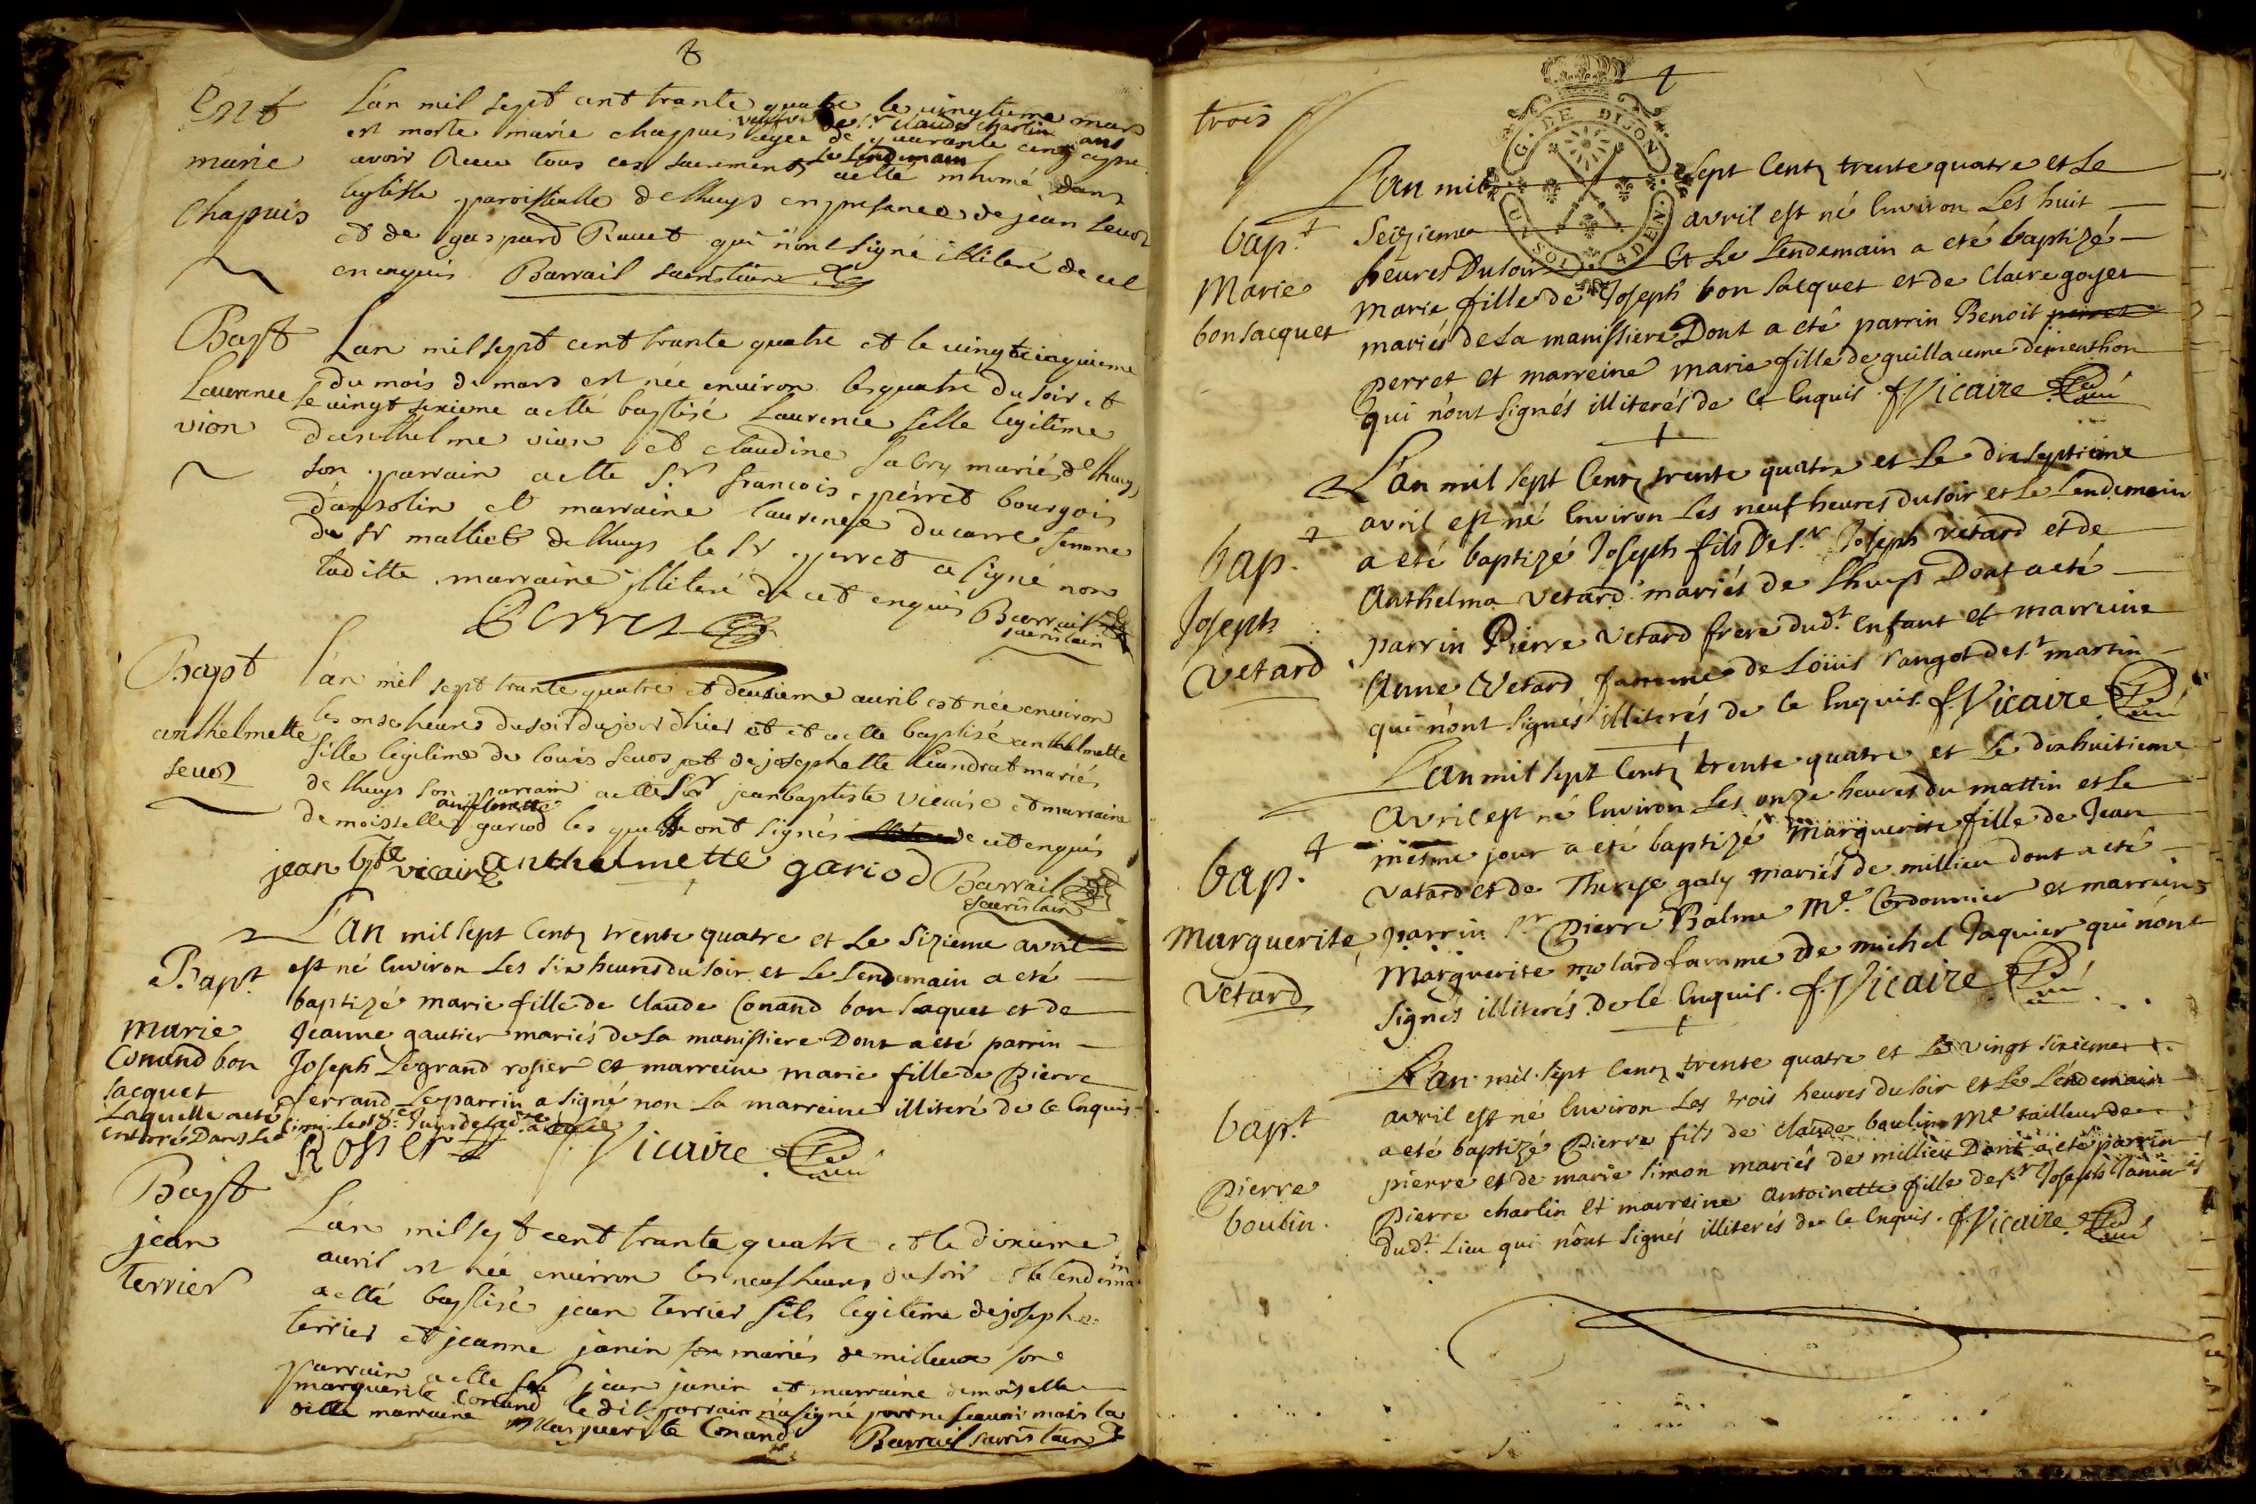 Ent
marie
chappuis
L'an mil sept cent trante quatre le vingtieme mars
est morte marie chappuis veufve de Sr claude charlin agee de quarante cinq ans apre
avoir Receu tous ces sacrements a ette inhumé le lendemain dans
leglisse paroissialle de lhuys en presance de jean seuoz
et de gaspard Ravet qui n'ont signé illiteré de cel
enquis Barrail sacristain
Bapt
Laurence
vion
Lan mil sept cent trante quatre et le vingtcinquieme
du mois de mars est née environ les quatre du soir et
le vingt sixieme a etté baptisé Laurence fille legitime
d'anthelme vion et claudine mariés de lhuys
son parrain a ette Sr francois perret bourgois
d'ansolin et marraine laurence ducarre femme
du Sr malliet de lhuys le Sr perret a signé non
laditte marraine illiteré de cet enquis Barrail
Perret
sacristain
Bapt
anthelmette
seuoz
L'an mil sept trante quatre et deuxieme avril est née environ
les onse heures du soir du jour dhier et a ette baptisé anthelmette
fille legitime de louis seuoz et de josephatte mariés
de lhuys son parrain a etté Sr jean baptiste vicaire et marraine
demoiselle anthelmette gariod les quels ont signés de cet enquis
jean bpte vicaire anthelmette gariod Barrail
Sacristain
Bapt
marie
Conand bon
Jacquet
Laquelle a eté
enterré Dans Le
L'an mil sept Centz trente quatre et Le Sizieme avril
est né Environ Les six heures du soir et Le Lendemain a eté
baptizé marie fille de Claude Conand bon Jaquet et de
Jeanne gautier mariés de La manissiere Dont a eté parrin
Joseph Legrand rosier et marreine marie fille de Pierre
ferrand Le parrin a signé non La marreine illiteré de Ce Enquis
Rosier f. Vicaire Curé
Bapt
jean
Terrier
L'an mil sept cent trante quatre et le dixieme
avril est née environ les neuf heures du soir et le lendemain
a etté baptisé jean Terrier fils legitime de joseph
terrier et jeanne janin mariés de milieux son
parrain a ette jean janin et marraine demoiselle
marguerite Conand le dit parrain n'a signé pour ne scauoir mais la
ditte marraine marguerite Conand Barrail sacristain
trois
G. DE DIJON
4 DEN.
bapt
Marie
bon Jacquet
L'an mil sept Centz trente quatre et Le
Seizieme avril est né Environ Les huit
heures Du soir Et Le Lendemain a eté baptizé
Marie fille de Joseph bon Jacquet et de Claire goyet
mariés de La manissiere Dont a eté parrin Benoit
perret et marreine marie fille de guillaume dimenthon
qui n'ont signés illiterés de Ce Enquis. f. Vicaire Curé
bap.
Joseph
Vetard
L'an mil sept Centz trente quatre et Le dixseptieme
avril est né Environ Les neuf heures du soir et Le Lendemain
a eté baptizé Joseph fils De Sr Joseph vetard et de
Anthelma Vetard mariés de Lhuys Dont a eté
parrin Pierre Vetard frere dudt. Enfant et marreine
Anne Vetard famme de Loüis rangot de St martin
qui n'ont signés illiterés de Ce Enquis. f. Vicaire Curé
bap.
Marguerite
Vetard
L'an mil sept Centz trente quatre et Le dixhuitieme
Avril est né Environ Les onze heures du mattin et Le
mesme jour a eté baptizé Marguerite fille de Jean
Vatard et de Therese galy mariés de millieu dont a eté
parrin Sr Pierre Balme Me. Cordonnier et marreine
Marguerite molard famme De michel Jaquier qui n'ont
signés illiterés de Ce Enquis. f. Vicaire Curé
bapt
Pierre
boulin.
L'an mil sept Centz trente quatre et Le vingt sixieme
avril est né Environ Les trois heures du soir et Le Lendemain
a eté baptizé Pierre fils de Claude boulin Me tailleur de
pierre et de marie simon mariés de millieu Dont a eté parrin
Pierre charlin Et marreine Antoinette fille de Sr Joseph Janin
dudt. Lieu qui n'ont signés illiterés de Ce Enquis. f. Vicaire Curé